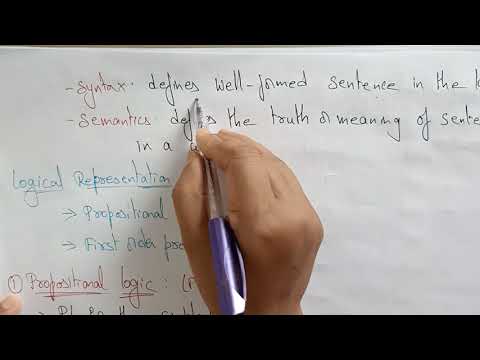 - Syntax: defines well-formed sentence in the
- Semantics: defines the truth or meaning of
in a
Logical Representation
→ Propositional
→ First order
① Propositional logic :